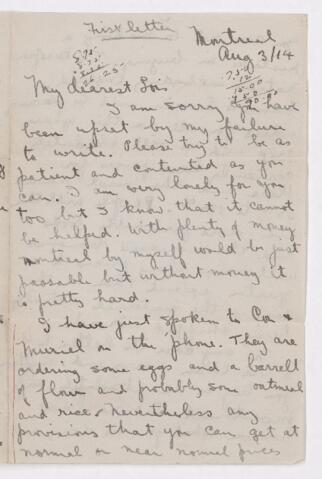 First letter
Montreal
Aug 3/14
My dearest Lois
I am sorry you have
been upset by my failure
to write. Please try to be as
patient and contented as you
can. I am very lonely for you
too but I know that it cannot
be helped. With plenty of money
Montreal by myself would be just
passable but without money it
is pretty hard.
I have just spoken to Con &
Muriel on the phone. They are
ordering some eggs and a barrell
of flour and probably some oatmeal
and rice. Nevertheless any
provisions that you can get at
normal or near normal prices